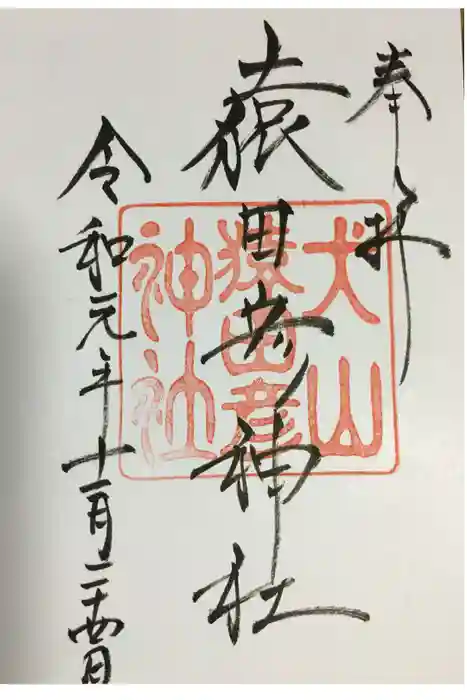 奉拝
猿田彦神社
令和元年十一月二十四日
犬山
猿田彦
神社